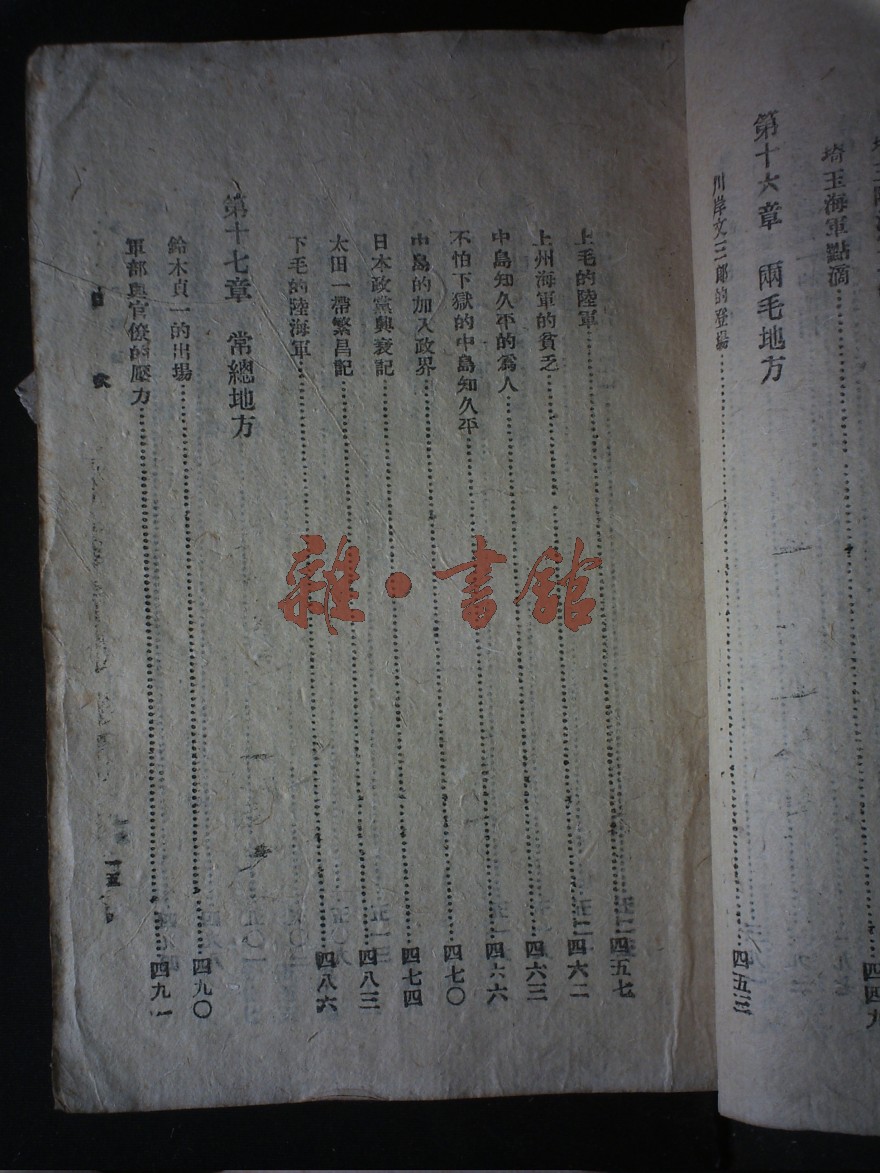 埼玉海軍點滴……四四九
第十六章　兩毛地方
川岸文三郎的登場……四五三
上毛的陸軍……四五七
上州海軍的貧乏……四六二
中島知久平的爲人……四六三
不怕下獄的中島知久平……四六六
中島的加入政界……四七〇
日本政黨興衰記……四七四
太田一帶繁昌記……四八三
下毛的陸海軍……四八六
第十七章　常總地方
鈴木貞一的出場……四九〇
軍部與官僚的壓力……四九一
目　次　一五
雜·書館